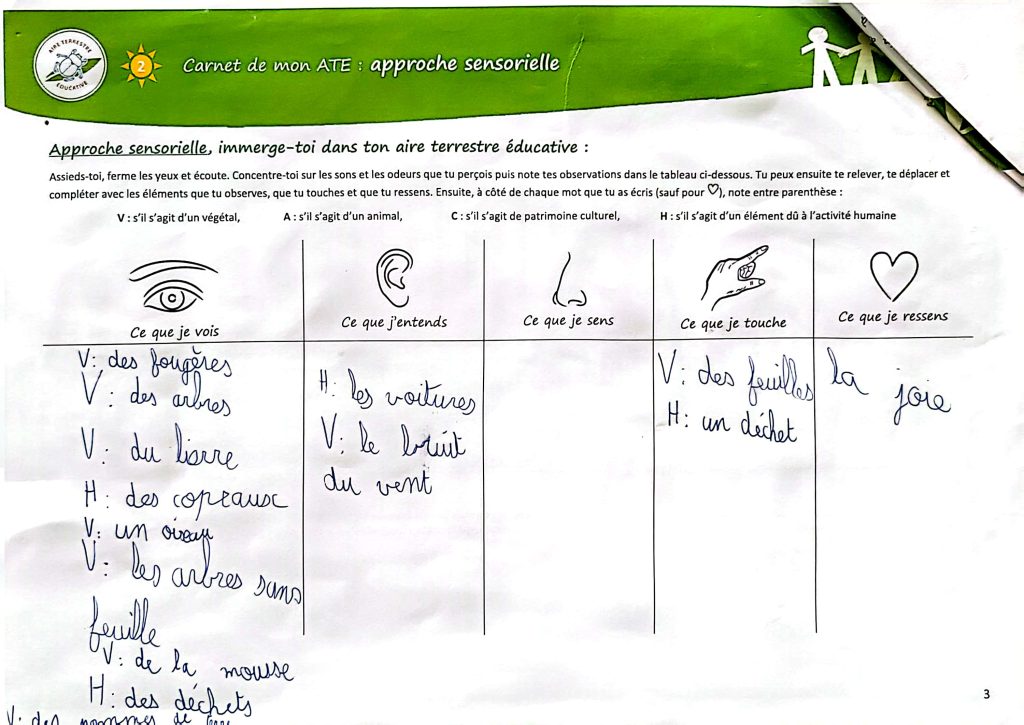 AIRE TERRESTRE
ÉDUCATIVE
2
Carnet de mon ATE : approche sensorielle
Approche sensorielle, immerge-toi dans ton aire terrestre éducative :
Assieds-toi, ferme les yeux et écoute. Concentre-toi sur les sons et les odeurs que tu perçois puis note tes observations dans le tableau ci-dessous. Tu peux ensuite te relever, te déplacer et
compléter avec les éléments que tu observes, que tu touches et que tu ressens. Ensuite, à côté de chaque mot que tu as écris (sauf pour ♡), note entre parenthèse :
V : s'il s'agit d'un végétal, A : s'il s'agit d'un animal, C : s'il s'agit de patrimoine culturel, H : s'il s'agit d'un élément dû à l'activité humaine
Ce que je vois
V: des fougères
V: des arbres
V: du lierre
H: des copeaux
V: un oiseau
V: les arbres sans
feuille
V: de la mousse
H: des déchets
V: des pommes de
Ce que j'entends
H: les voitures
V: le bruit
du vent
Ce que je sens
Ce que je touche
V: des feuilles
H: un déchet
Ce que je ressens
la joie
3